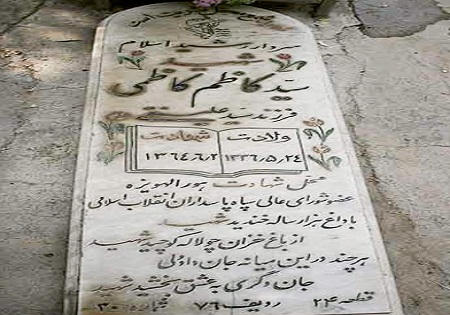 سردار رشید اسلام
شهید
سید کاظم کاظمی
فرزند سید
ولادت شهادت
۱۳۳۶/۵/۲۴ ۱۳۶۴/۶/۲
محل شهادت هورالهویزه
عضو شورای عالی سپاه پاسداران انقلاب اسلامی
با داغ هزار ساله خندید شهید
از باغ خزان چو لاله کوچید شهید
هر چند در این میانه جان داد ولی
جان دگری به عشق بخشید شهید
قطعه ۲۴ ردیف ۷۶ شماره ۳۰